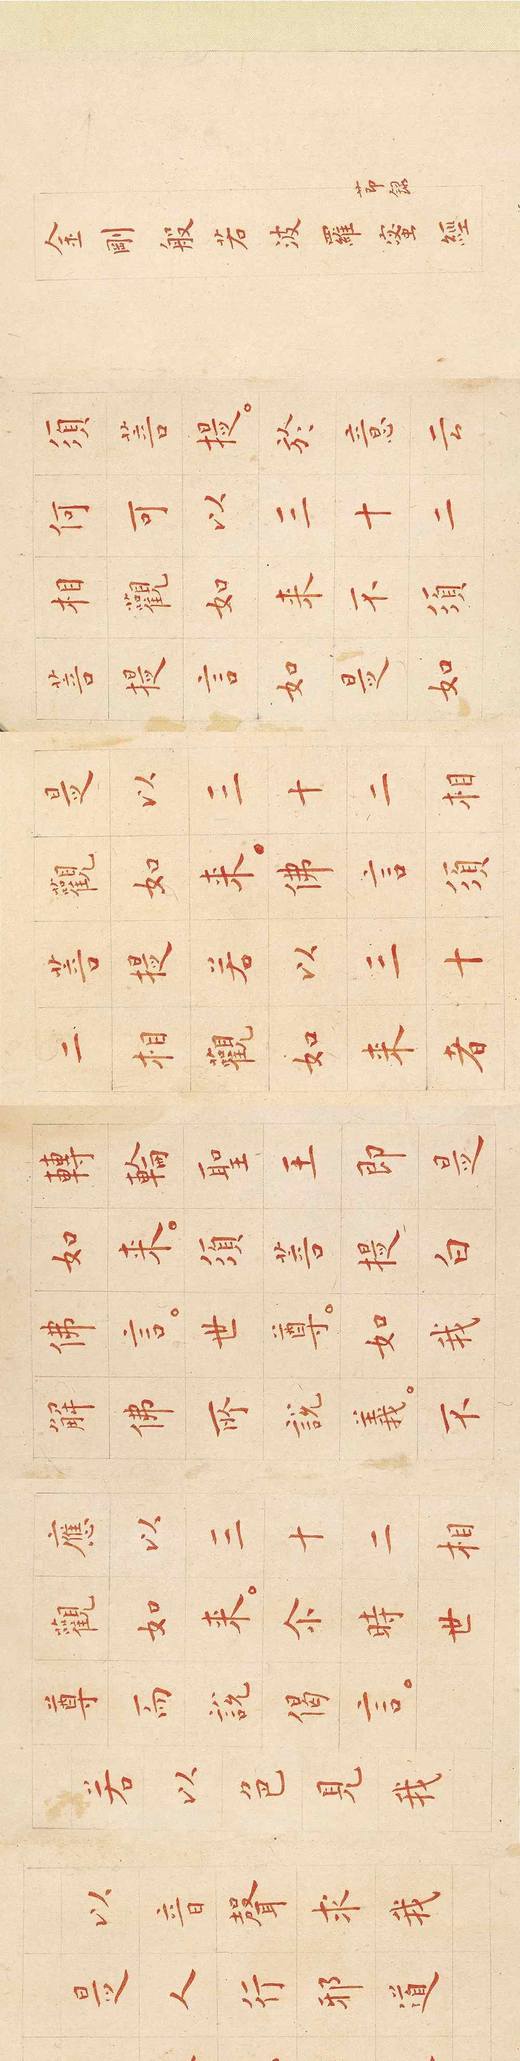 金剛般若波羅蜜經
節錄
須菩提。於意云
何可以三十二
相觀如来不須
菩提言如是如
是以三十二相
觀如来。佛言須
菩提若以三十
二相觀如来者
轉輪聖王即是
如来。須菩提白
佛言。世尊。如我
解佛所說義。不
應以三十二相
觀如来。尒時世
尊而說偈言。
若以色見我
以音聲求我
是人行邪道